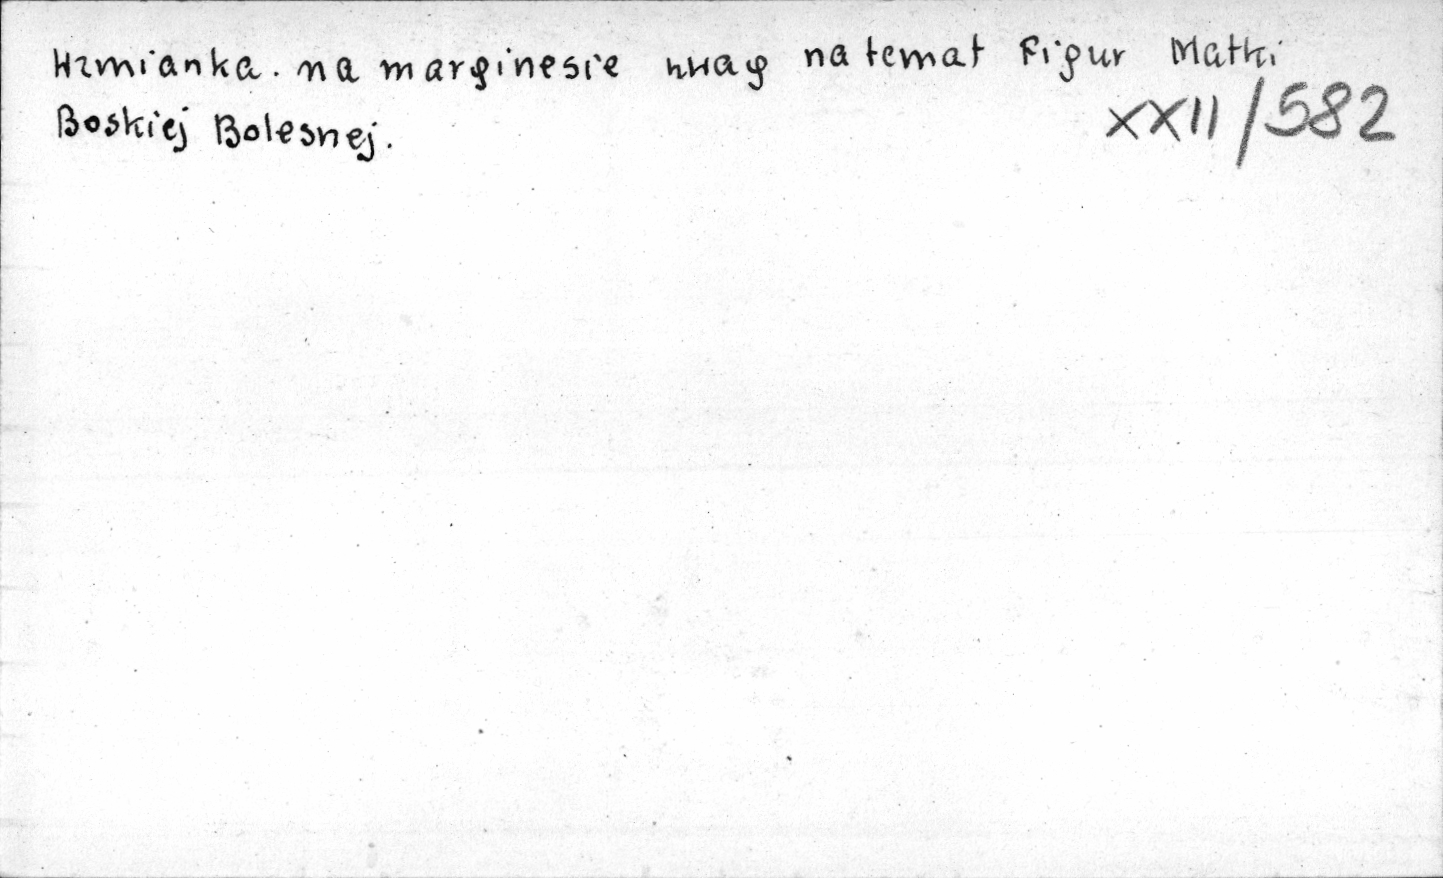 Wzmianka. na marginesie uwag na temat figur Matki
Boskiej Bolesnej.
XXII/582